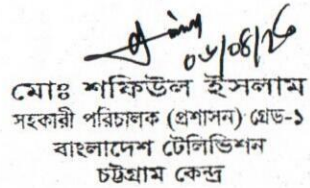 ০৬/০৪/২৬
মোঃ শফিউল ইসলাম
সহকারী পরিচালক (প্রশাসন) গ্রেড-১
বাংলাদেশ টেলিভিশন
চট্টগ্রাম কেন্দ্র